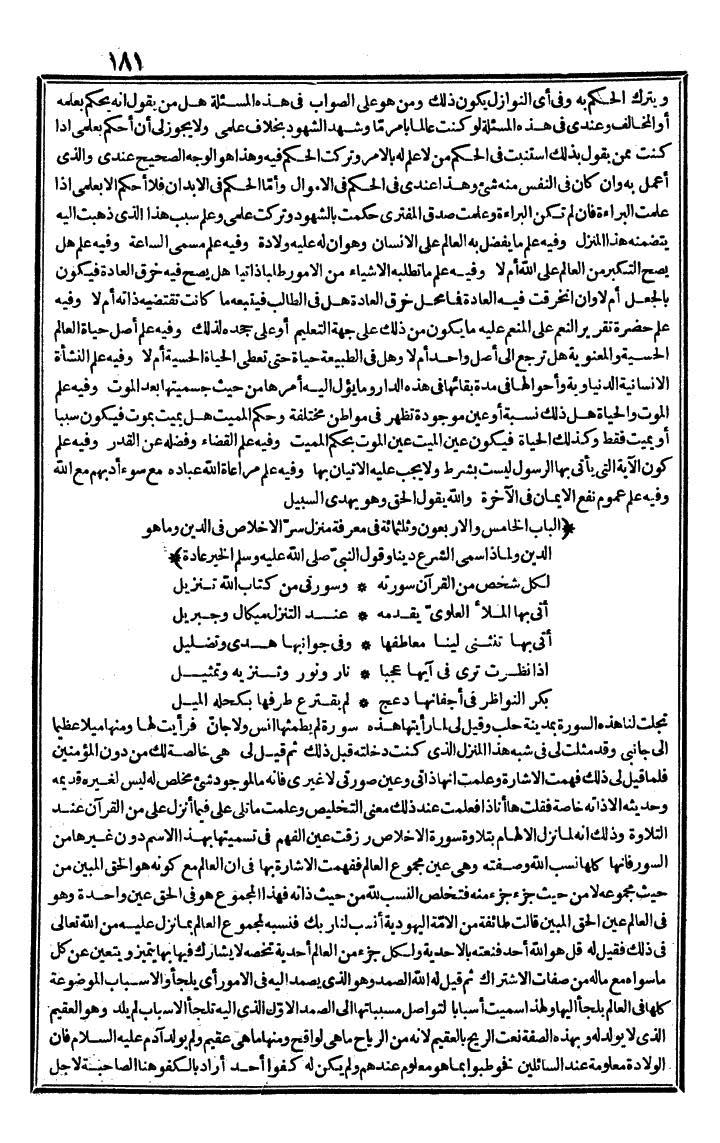 ١٨١
ويترك الحكم به وفى أى النوازل يكون ذلك ومن هو على الصواب فى هذه المسئلة هل من يقول انه يحكم بعلمه
أو المخالف وعندى فى هذه المسئلة لو كنت عالما بامر ما وشهد الشهود بخلاف علمى ولا يجوز لى أن أحكم بعلمى اذا
كنت ممن يقول بذلك استنبت فى الحكم من لا علم له بالامر وتركت الحكم فيه وهذا هو الوجه الصحيح عندى والذى
أعمل به وان كان فى النفس منه شئ وهذا عندى فى الحكم فى الاموال وأما الحكم فى الابدان فلا أحكم الا بعلمى اذا
علمت البراءة فان لم تكن البراءة وعلمت صدق المفترى حكمت بالشهود وتركت علمى وعلم سبب هذا الذى ذهبت اليه
يتضمنه هذا المنزل وفيه علم ما يفضل به العالم على الانسان وهو ان له عليه ولادة وفيه علم مسمى الساعة وفيه علم هل
يصح التكبر من العالم على الله أم لا وفيه علم ما تطلبه الاشياء من الامور طلبا ذاتيا هل يصح فيه خرق العادة فيكون
بالجعل أم لا وان انخرقت فيه العادة فما محل خرق العادة هل فى الطالب فيتبعه ما كانت تقتضيه ذاته أم لا وفيه
علم حضرة تقرير النعم على المنعم عليه ما يكون من ذلك على جهة التعليم أو على جحده لذلك وفيه علم أصل حياة العالم
الحسية والمعنوية هل ترجع الى أصل واحد أم لا وهل فى الطبيعة حياة حتى تعطى الحياة الحسية أم لا وفيه علم النشأة
الانسانية الدنياوية وأحوالها فى مدة بقائها فى هذه الدار وما يؤل اليه أمرها من حيث جسميتها بعد الموت وفيه علم
الموت والحياة هل ذلك نسبة أو عين موجودة تظهر فى مواطن مختلفة وحكم المميت هل يميت بموت فيكون سببا
أو يميت فقط وكذلك الحياة فيكون عين الميت عين الموت بحكم المميت وفيه علم القضاء وفضله عن القدر وفيه علم
كون الآية التى يأتى بها الرسول ليست بشرط ولا يجب عليه الاتيان بها وفيه علم مراعاة الله عباده مع سوء أدبهم مع الله
وفيه علم عموم نفع الايمان فى الآخرة والله يقول الحق وهو يهدى السبيل
﴿الباب الخامس والاربعون وثلثمائة فى معرفة منزل سر الاخلاص فى الدين وما هو
الدين ولماذا سمى الشرع دينا وقول النبى صلى الله عليه وسلم الخير عادة﴾
لكل شخص من القرآن سورته * وسورتى من كتاب الله تنزيل
أتى بها الملأ العلوى يقدمه * عند التنزل ميكال وجبريل
أتى بها تنثنى لينا معاطفها * وفى جوانبها هدى وتضليل
اذا نظرت ترى فى آيها عجبا * نار ونور وتنزيه وتمثيل
بكر النواظر فى أجفانها دعج * لم يفترع طرفها بكحله الميل
تجلت لنا هذه السورة بمدينة حلب وقيل لى لما رأيتها هذه سورة لم يطمثها انس ولا جان فرأيت لها ومنها ميلا عظيما
الى جانبى وقد مثلت لى فى شبه هذا المنزل الذى كنت دخلته قبل ذلك ثم قيل لى هى خالصة لك من دون المؤمنين
فلما قيل لى ذلك فهمت الاشارة وعلمت انها ذاتى وعين صورتى لا غيرى فانه ما لموجود شئ مخلص له ليس لغيره قديمه
وحديثه الا ذاته خاصة فقلت ها أنا ذا فعلمت عند ذلك معنى التخليص وعلمت ما تلى على فيما أنزل على من القرآن عند
التلاوة وذلك انه لما نزل الالهام بتلاوة سورة الاخلاص رزقت عين الفهم فى تسميتها بهذا الاسم دون غيرها من
السور فانها كلها نسب الله وصفته وهى عين مجموع العالم ففهمت الاشارة بها فى ان العالم مع كونه هو الحق المبين من
حيث مجموعه لا من حيث جزء جزء منه فتخلص النسب لله من حيث ذاته فهذا المجموع هو فى الحق عين واحدة وهو
فى العالم عين الحق المبين قالت طائفة من الامة اليهودية أنسب لنا ربك فنسبه لمجموع العالم بما نزل عليه من الله تعالى
فى ذلك فقيل له قل هو الله أحد فنعته بالاحدية ولكل جزء من العالم أحدية تخصه لا يشارك فيها بها يتميز ويتعين عن كل
ما سواه مع ماله من صفات الاشتراك ثم قيل له الله الصمد وهو الذى يصمد اليه فى الامور أى يلجأ والاسباب الموضوعة
كلها فى العالم يلجأ اليها ولهذا سميت أسبابا لتواصل مسبباتها الى الصمد الاول الذى اليه تلجأ الاسباب لم يلد وهو العقيم
الذى لا يولد له وبهذه الصفة نعت الريح بالعقيم لانه من الرياح ما هى لواقح ومنها ما هى عقيم ولم يولد آدم عليه السلام فان
الولادة معلومة عند السائلين فخوطبوا بما هو معلوم عندهم ولم يكن له كفوا أحد أراد بالكفو هنا الصاحبة لاجل